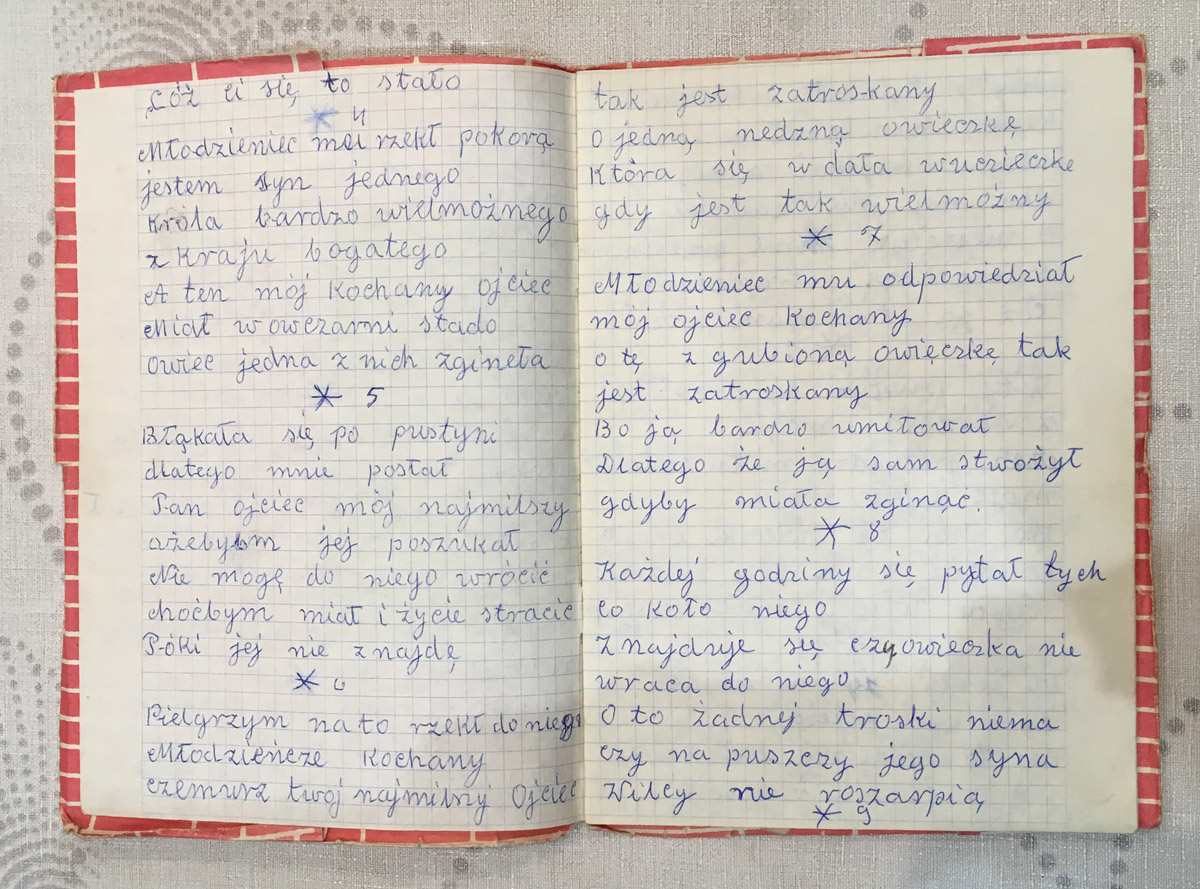 Cóż ci się to stało
* 4
Młodzieniec mu rzekł pokorą
jestem syn jednego
Króla bardzo wielmożnego
z Kraju bogatego
A ten mój Kochany ojciec
Miał w owczarni stado
owiec jedna z nich zgineła
* 5
Błąkała się po pustyni
dlatego mnie posłał
Pan ojciec mój najmilszy
ażebybm jej poszukał
Nie mogę do niego wrócić
choćbym miał i życie stracić
Póki jej nie znajdę
* 6
Pielgrzym na to rzekł do niego
Młodzieńcze Kochany
czemurz twój najmilny Ojciec
tak jest zatroskany
O jedną nedzną owieczkę
Która się w dała wucieczkę
gdy jest tak wielmożny
* 7
Młodzieniec mu odpowiedział
mój ojciec Kochany
o tę zgubioną owięczkę tak
jest zatroskany
Bo ją bardzo umiłował
Dlatego że ją sam stwożył
gdyby miała zginąć.
* 8
Każdej godziny się pytał tych
co koło niego
Znajduje się czy owieczka nie
wraca do niego
O to żadnej troski niema
czy na puszczy jego syna
Wilcy nie roszarpią
* 9